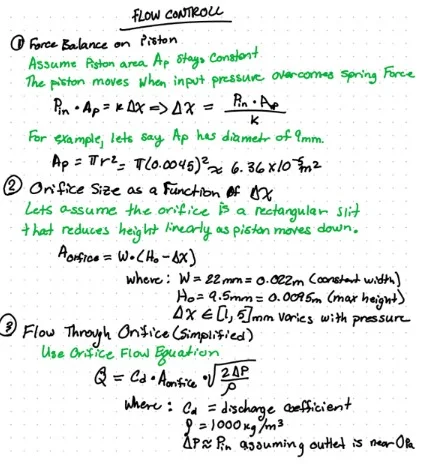 FLOW CONTROLL
① Force Balance on Piston
Assume Piston area Ap stays Constant
The piston moves when input pressure overcomes spring Force
Pin · Ap = k Δx => Δx = Pin · Ap / k
For example, lets say Ap has diametr of 9mm.
Ap = πr² = π(0.0045)² ≈ 6.36 x10⁻⁵ m²
② Orifice Size as a Function of ΔX
Lets assume the orifice is a rectangular slit
that reduces height linearly as piston moves down.
Aorifice = W·(Ho - ΔX)
where: W = 22mm = 0.022m (constant width)
Ho = 9.5mm = 0.0095m (max height)
ΔX ∈ [1, 5]mm varies with pressure
③ Flow Through Orifice (Simplified)
Use Orifice Flow Equation
Q = Cd · Aorifice · √(2ΔP / ρ)
where: Cd = discharge coefficient
ρ = 1000 kg/m³
ΔP ≈ Pin assuming outlet is near 0Pa